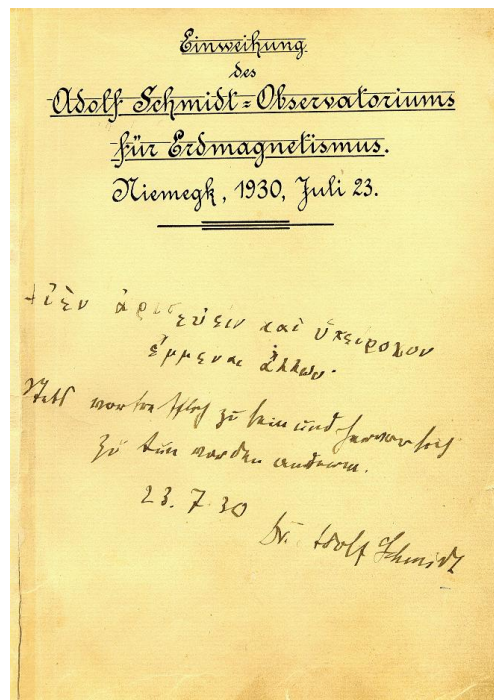 Einweihung
des
Adolf Schmidt=Observatoriums
für Erdmagnetismus.
Niemegk, 1930, Juli 23.
Αἰὲν ἀριστεύειν καὶ ὑπείροχον
ἔμμεναι ἄλλων.
Stets vortrefflich zu sein und hervor sich
zu tun vor den anderen.
23. 7. 30
Dr. Adolf Schmidt